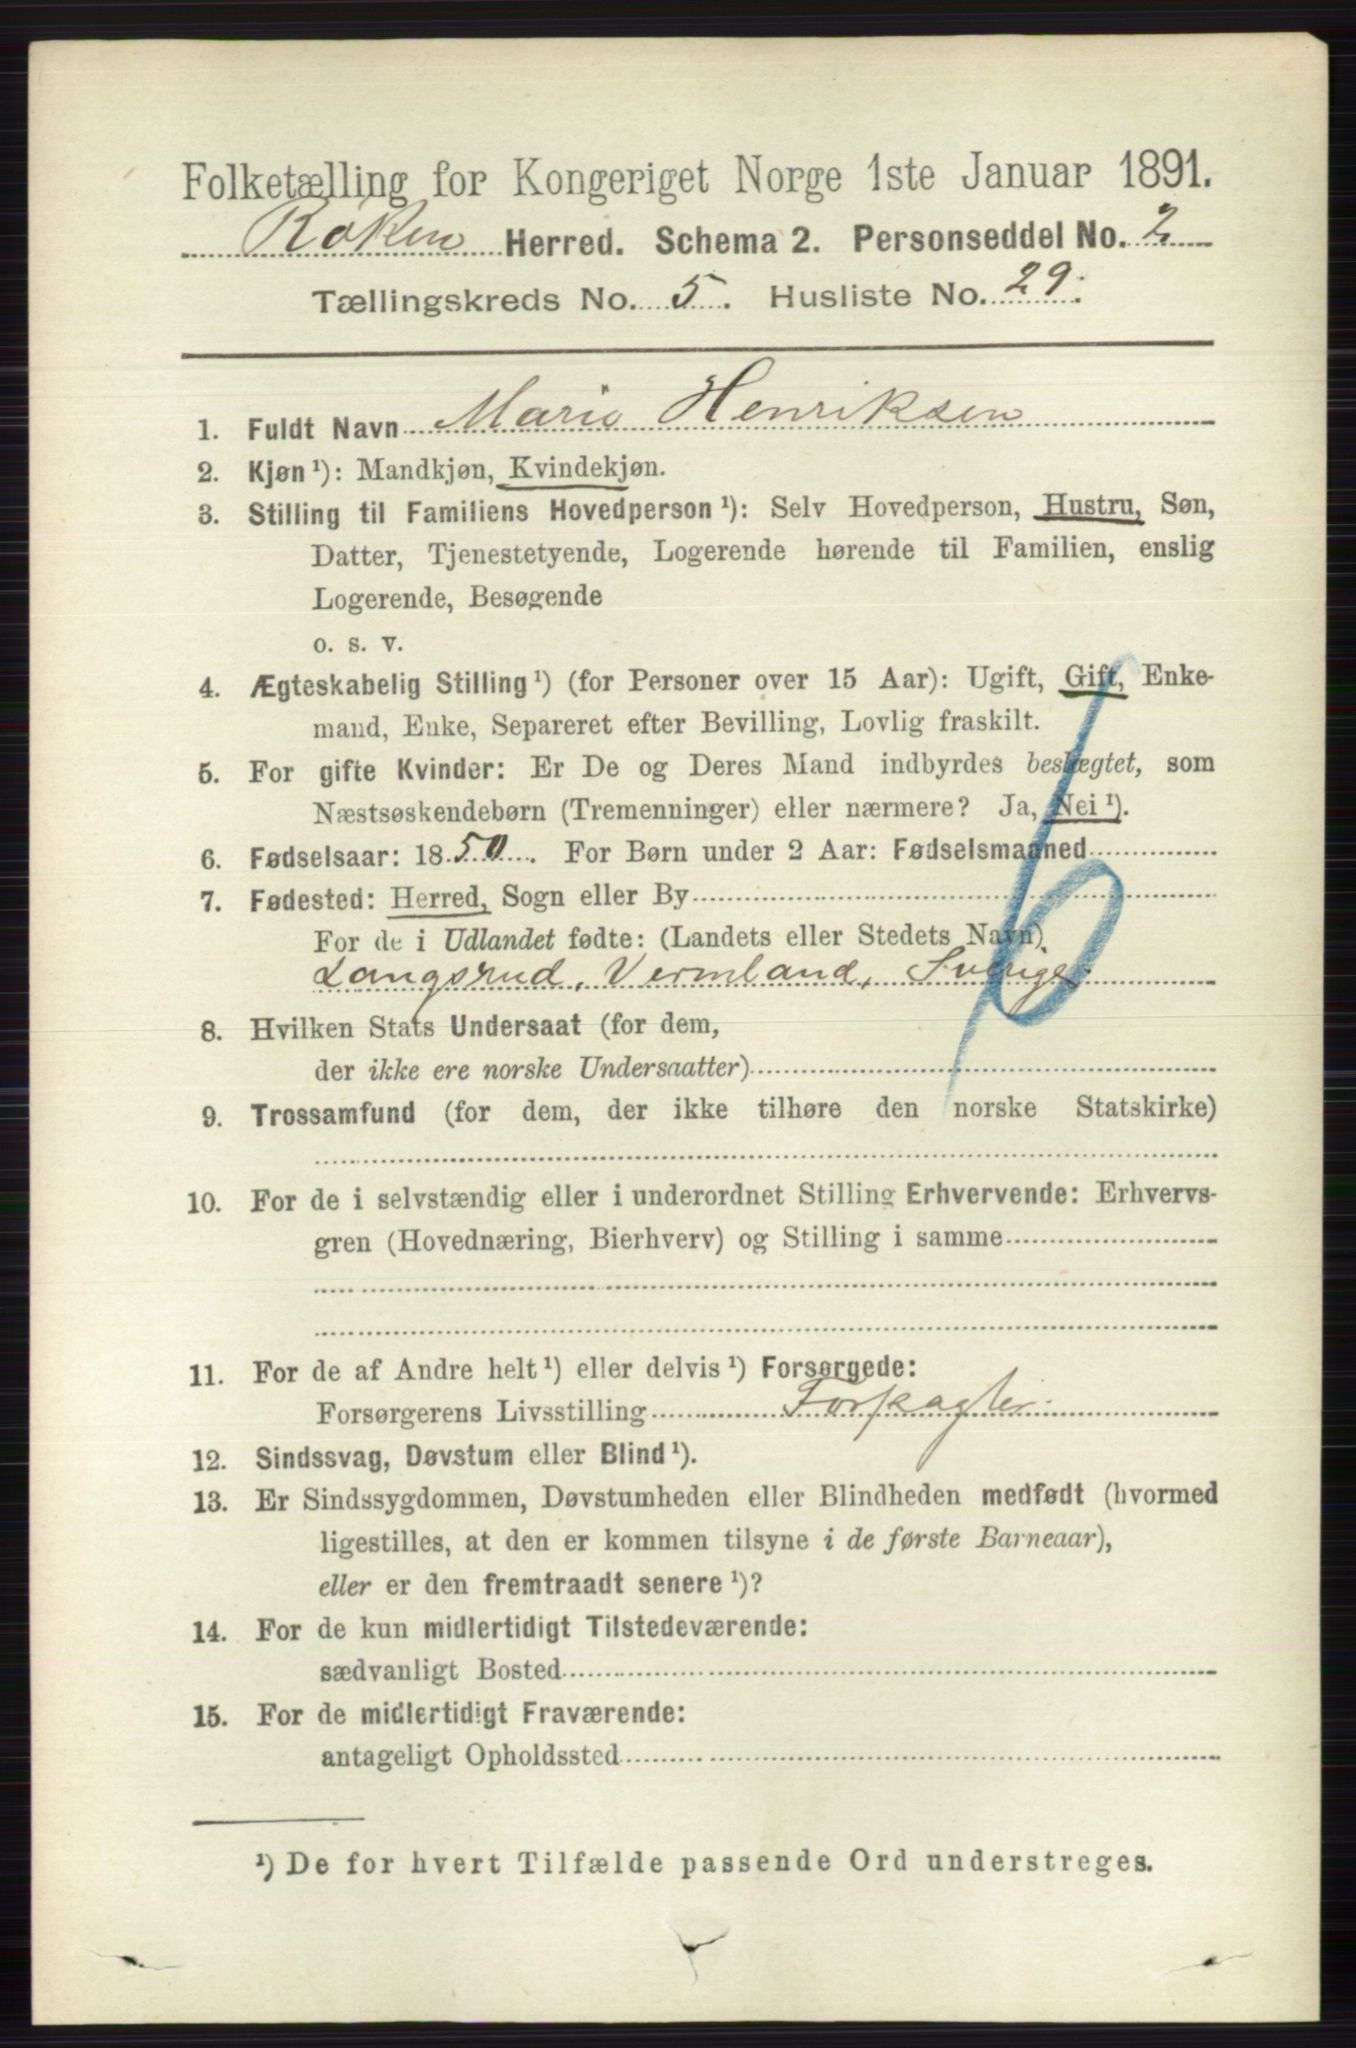 Folketælling for Kongeriget Norge 1ste Januar 1891.
Røken Herred. Schema 2. Personseddel No. 2
Tællingskreds No. 5. Husliste No. 29.
1. Fuldt Navn Marie Henriksen
2. Kjøn ¹): Mandkjøn, Kvindekjøn.
3. Stilling til Familiens Hovedperson ¹): Selv Hovedperson, Hustru, Søn,
Datter, Tjenestetyende, Logerende hørende til Familien, enslig
Logerende, Besøgende
o. s. v.
4. Ægteskabelig Stilling ¹) (for Personer over 15 Aar): Ugift, Gift, Enke-
mand, Enke, Separeret efter Bevilling, Lovlig fraskilt.
5. For gifte Kvinder: Er De og Deres Mand indbyrdes beslægtet, som
Næstsøskendebørn (Tremenninger) eller nærmere? Ja, Nei ¹).
6. Fødselsaar: 1850. For Børn under 2 Aar: Fødselsmaaned
7. Fødested: Herred, Sogn eller By
For de i Udlandet fødte: (Landets eller Stedets Navn)
Langsrud, Vermland, Sverige.
8. Hvilken Stats Undersaat (for dem,
der ikke ere norske Undersaatter)
9. Trossamfund (for dem, der ikke tilhøre den norske Statskirke)
10. For de i selvstændig eller i underordnet Stilling Erhvervende: Erhvervs-
gren (Hovednæring, Bierhverv) og Stilling i samme
11. For de af Andre helt ¹) eller delvis ¹) Forsørgede:
Forsørgerens Livsstilling Forpagter
12. Sindssvag, Døvstum eller Blind ¹).
13. Er Sindssygdommen, Døvstumheden eller Blindheden medfødt (hvormed
ligestilles, at den er kommen tilsyne i de første Barneaar),
eller er den fremtraadt senere ¹)?
14. For de kun midlertidigt Tilstedeværende:
sædvanligt Bosted
15. For de midlertidigt Fraværende:
antageligt Opholdssted
¹) De for hvert Tilfælde passende Ord understreges.